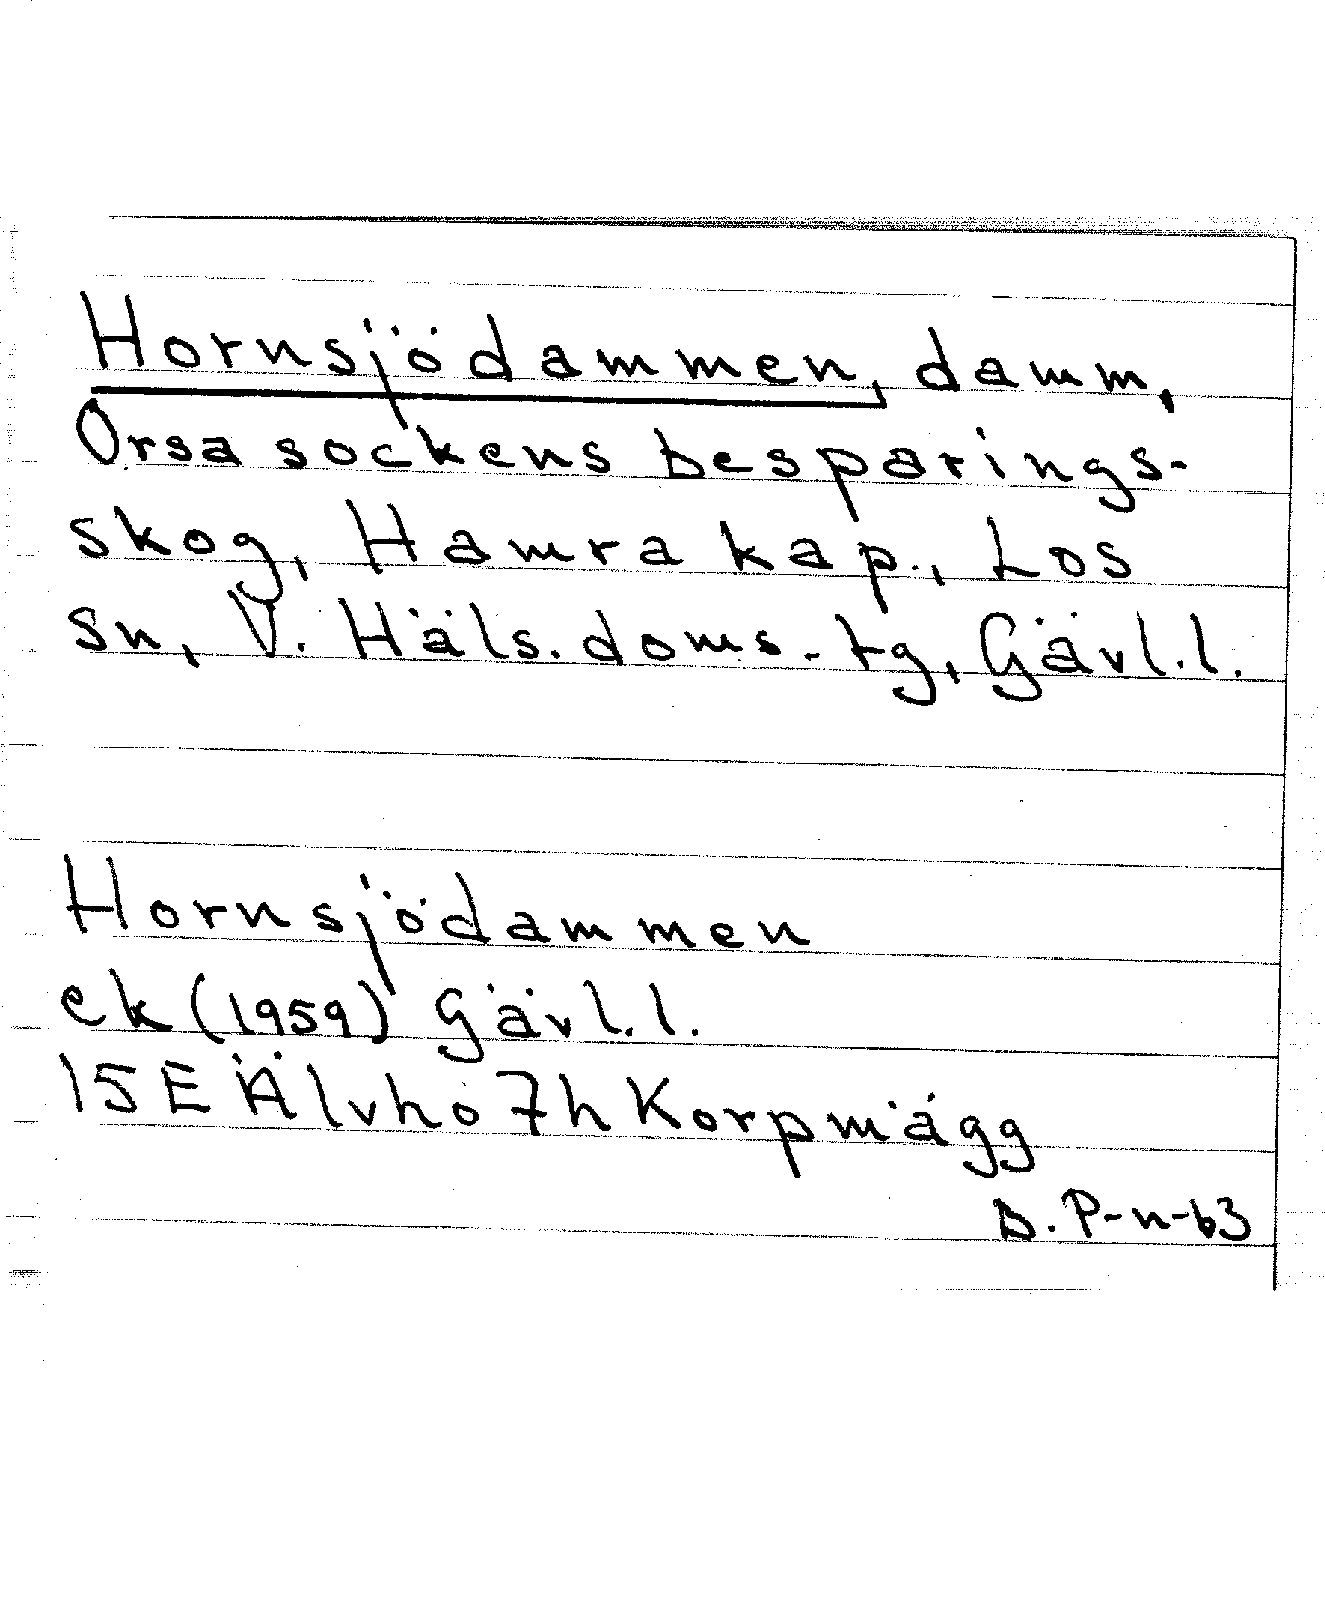 Hornsjödammen, damm,
Orsa sockens besparings-
skog, Hamra kap., Los
sn, V. Häls. doms.-tg, Gävl.l.
Hornsjödammen
ek (1959) Gävl.l.
15E Älvho 7h Korpmägg
D. P-n-63